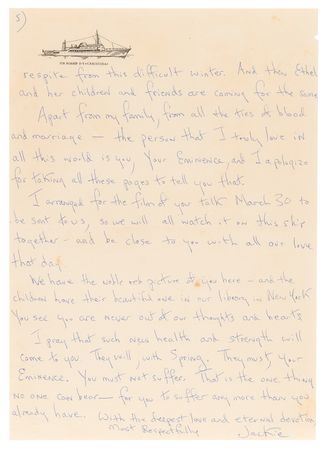 5)
respite from this difficult winter. And then Ethel
and her children and friends are coming for the same
Apart from my family, from all the ties of blood
and marriage — the person that I truly love in
all this world is you, Your Eminence, and I apologize
for taking all these pages to tell you that.
I arranged for the film of your talk March 30 to
be sent to us, so we will all watch it on this ship
together - and be close to you with all our love
that day.
We have the noble red picture of you here - and the
children have their beautiful one in our library in New York
You see you are never out of our thoughts and hearts
I pray that such new health and strength will
come to you. They will, with Spring. They must, Your
Eminence. You must not suffer. That is the one thing
no one can bear — for you to suffer any more than you
already have. With the deepest love and eternal devotion
Most Respectfully
Jackie